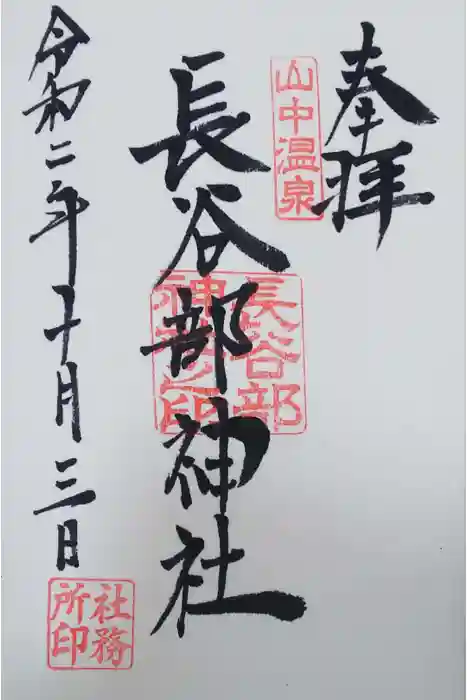 奉拝
山中温泉
長谷部神社
長谷部
神社之印
令和二年十月三日
社務
所印